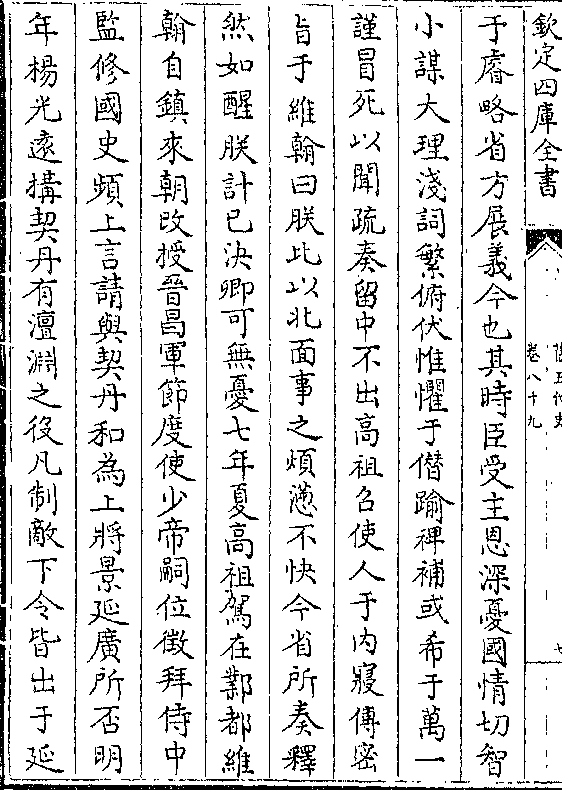 欽定四庫全書
舊五代史
卷八十九
七
于睿略省方展義今也其時臣受主恩深憂國情切智
小謀大理淺詞繁俯伏惟懼于僭踰裨補或希于萬一
謹冒死以聞疏奏留中不出高祖召使人于内寢傳密
旨于維翰曰朕比以北面事之煩懣不快今省所奏釋
然如醒朕計已決卿可無憂七年夏高祖駕在鄴都維
翰自鎮來朝改授晉昌軍節度使少帝嗣位徵拜侍中
監修國史頻上言請與契丹和為上將景延廣所否明
年楊光遠搆契丹有澶淵之役凡制敵下令皆出于延